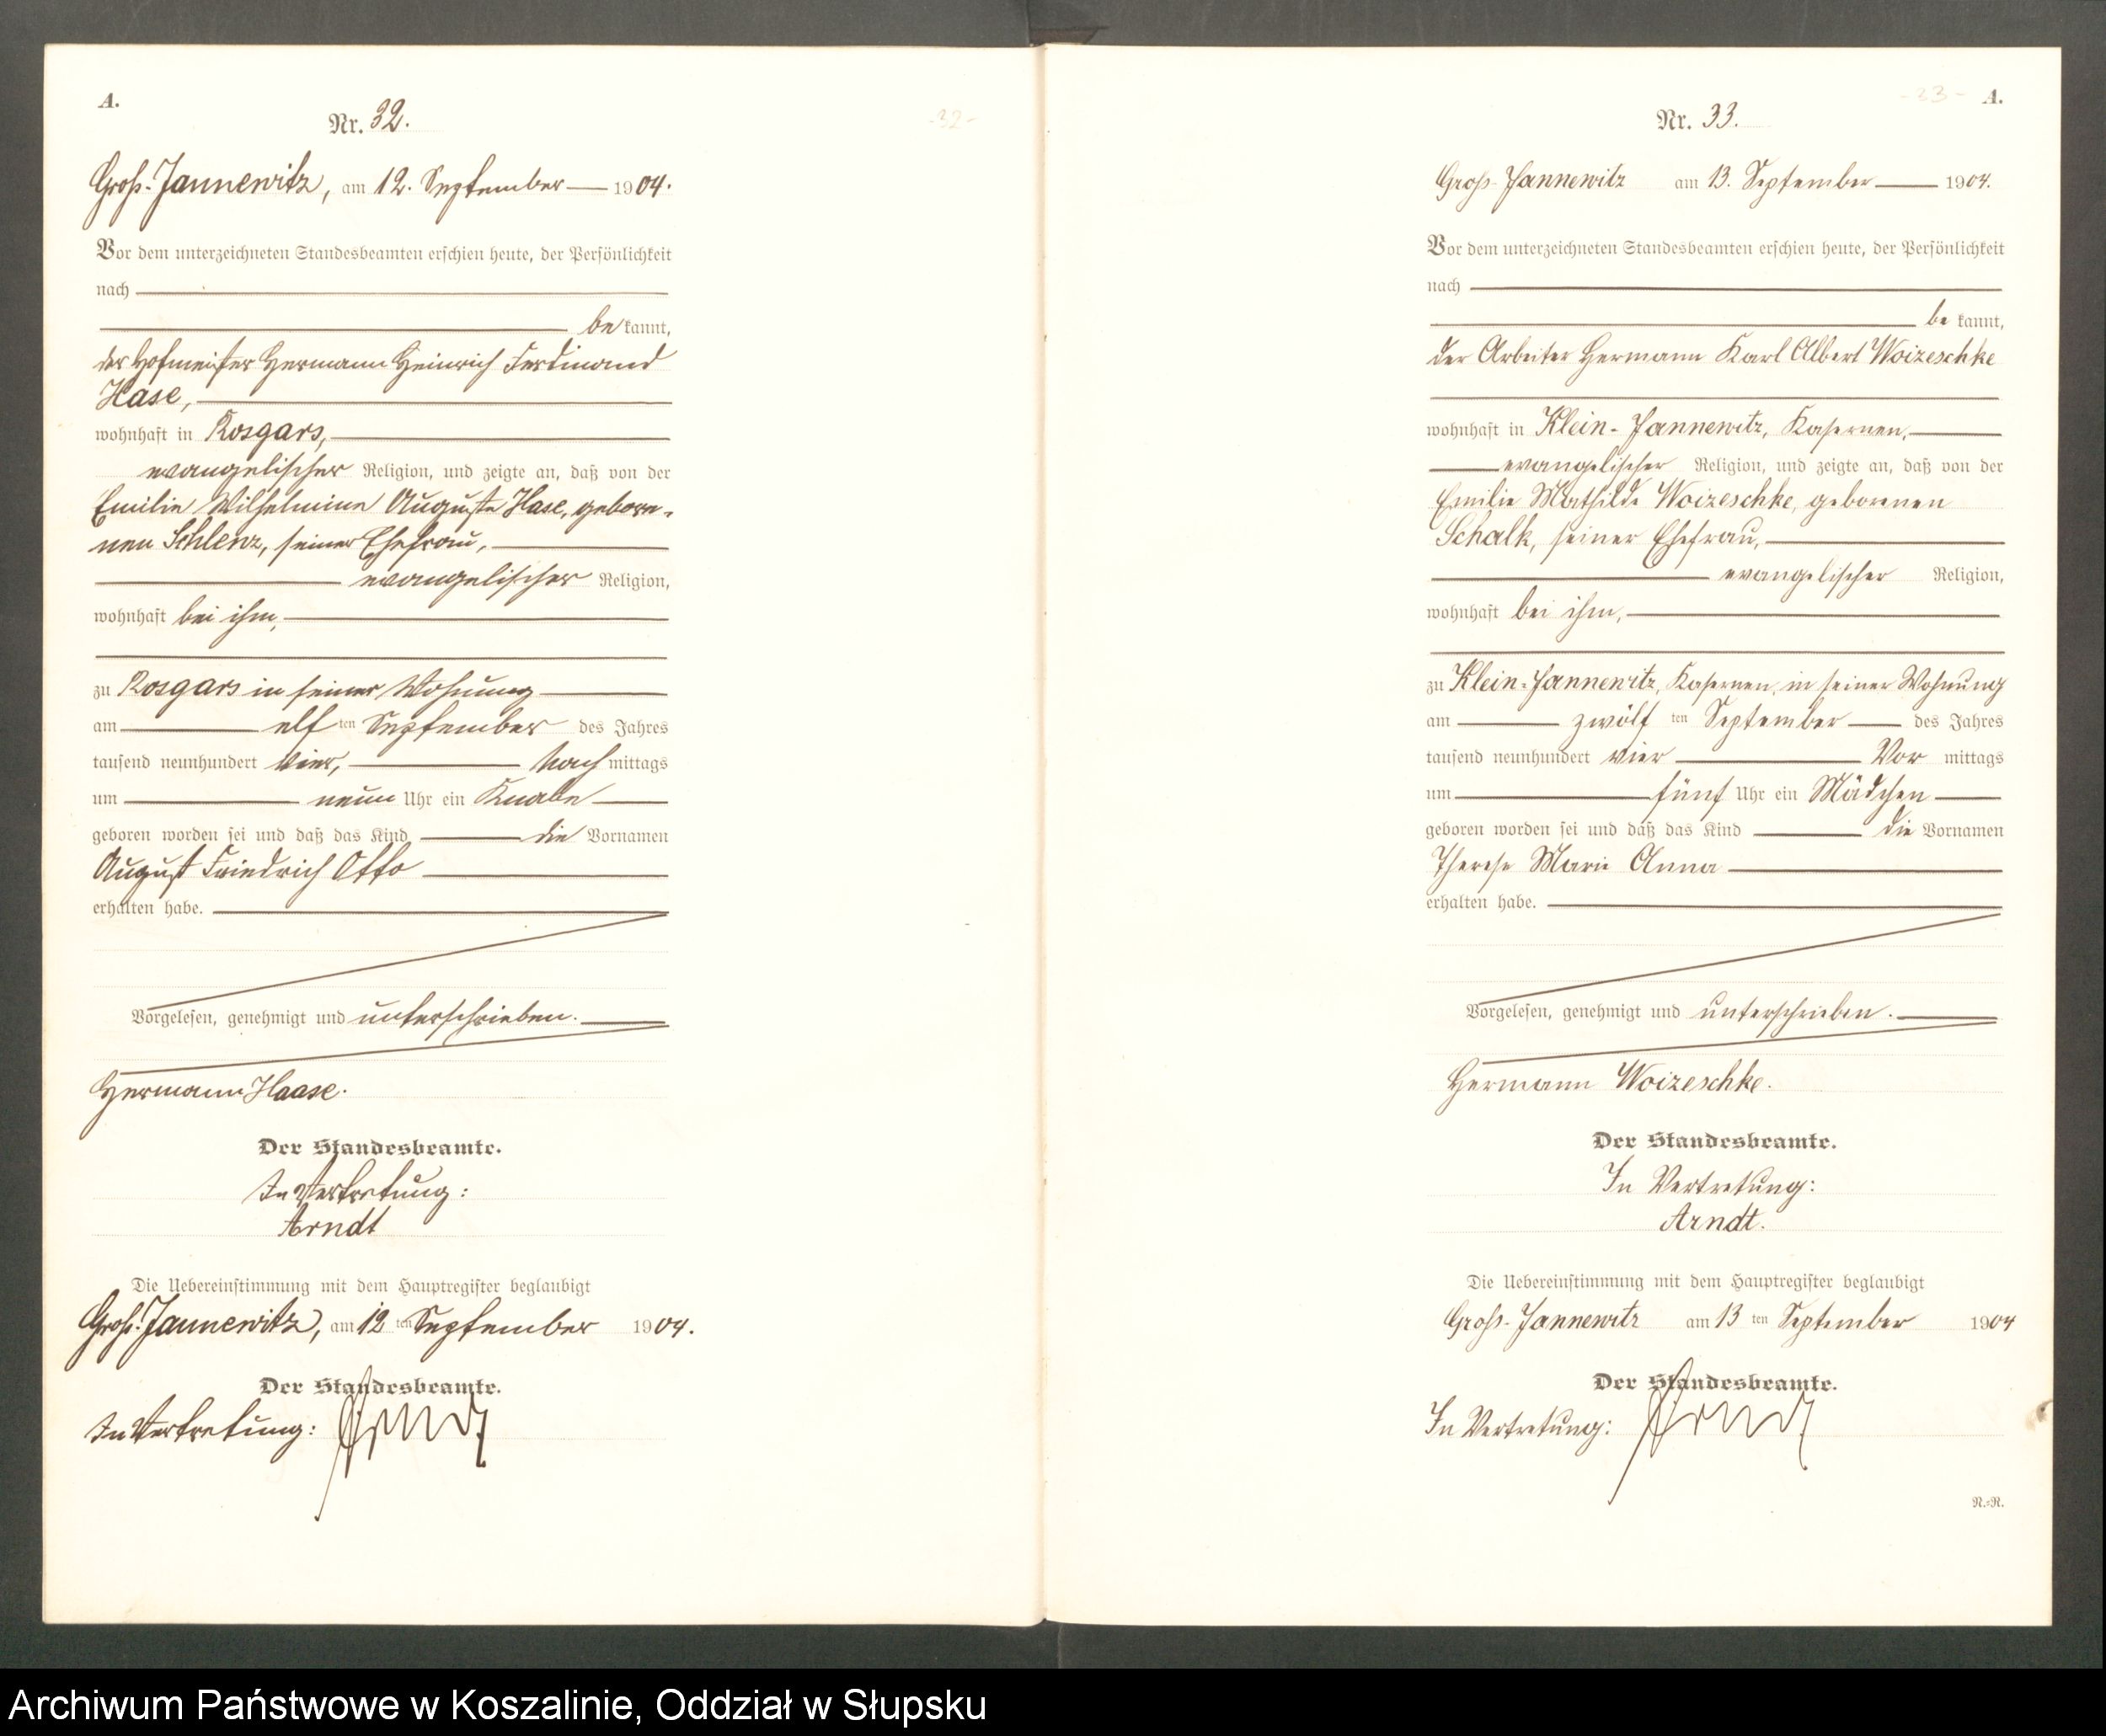 A.
Nr. 32.
-32-
Groß-Jannewitz, am 12. September 1904.
Vor dem unterzeichneten Standesbeamten erschien heute, der Persönlichkeit
nach
be kannt,
der Hofmeister Hermann Heinrich Ferdinand
Hase,
wohnhaft in Rosgars,
evangelischer Religion, und zeigte an, daß von der
Emilie Wilhelmine Auguste Hase, gebore-
nen Schlenz, seiner Ehefrau,
evangelischer Religion,
wohnhaft bei ihm,
zu Rosgars in seiner Wohnung
am elf ten September des Jahres
tausend neunhundert vier, Nach mittags
um neun Uhr ein Knabe
geboren worden sei und daß das Kind die Vornamen
August Friedrich Otto
erhalten habe.
Vorgelesen, genehmigt und unterschrieben.
Hermann Haase.
Der Standesbeamte.
In Vertretung:
Arndt
Die Uebereinstimmung mit dem Hauptregister beglaubigt
Groß-Jannewitz, am 12 ten September 1904.
Der Standesbeamte.
In Vertretung: Arndt
-33-
A.
Nr. 33.
Groß-Jannewitz am 13. September 1904.
Vor dem unterzeichneten Standesbeamten erschien heute, der Persönlichkeit
nach
be kannt,
der Arbeiter Hermann Karl Albert Woizeschke
wohnhaft in Klein-Jannewitz, Kasernen,
evangelischer Religion, und zeigte an, daß von der
Emilie Mathilde Woizeschke, geborenen
Schalk, seiner Ehefrau,
evangelischer Religion,
wohnhaft bei ihm,
zu Klein-Jannewitz, Kasernen, in seiner Wohnung
am zwölf ten September des Jahres
tausend neunhundert vier Vor mittags
um fünf Uhr ein Mädchen
geboren worden sei und daß das Kind die Vornamen
Therese Marie Anna
erhalten habe.
Vorgelesen, genehmigt und unterschrieben.
Hermann Woizeschke.
Der Standesbeamte.
In Vertretung:
Arndt.
Die Uebereinstimmung mit dem Hauptregister beglaubigt
Groß-Jannewitz am 13 ten September 1904
Der Standesbeamte.
In Vertretung: Arndt
R.=R.
Archiwum Państwowe w Koszalinie, Oddział w Słupsku